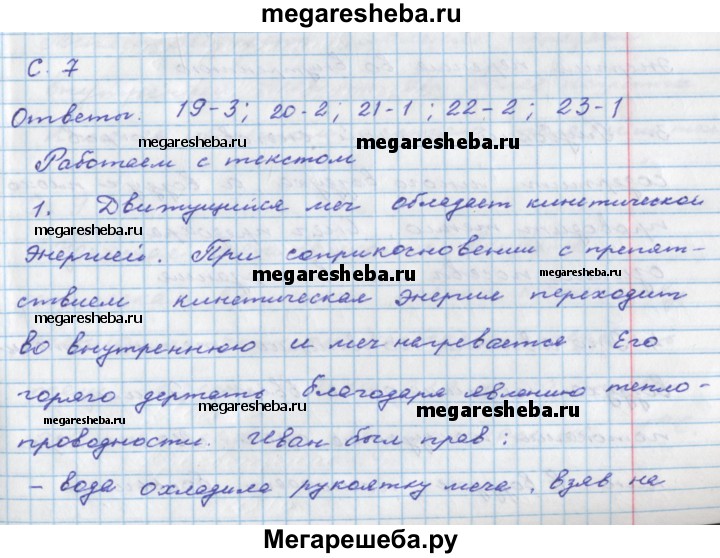 megaresheba.ru
С. 7
Ответы. 19-3; 20-2; 21-1; 22-2; 23-1
megaresheba.ru megaresheba.ru
Работаем с текстом
1. Движущийся меч обладает кинетической
megaresheba.ru megaresheba.ru
энергией. При соприкосновении с препят-
megaresheba.ru megaresheba.ru
ствием кинетическая энергия переходит
megaresheba.ru megaresheba.ru
во внутреннюю и меч нагревается. Его
горячо держать благодаря явлению тепло-
megaresheba.ru megaresheba.ru megaresheba.ru
проводности. Иван был прав:
- вода охладила рукоятку меча, взяв на
Мегарешеба.ру